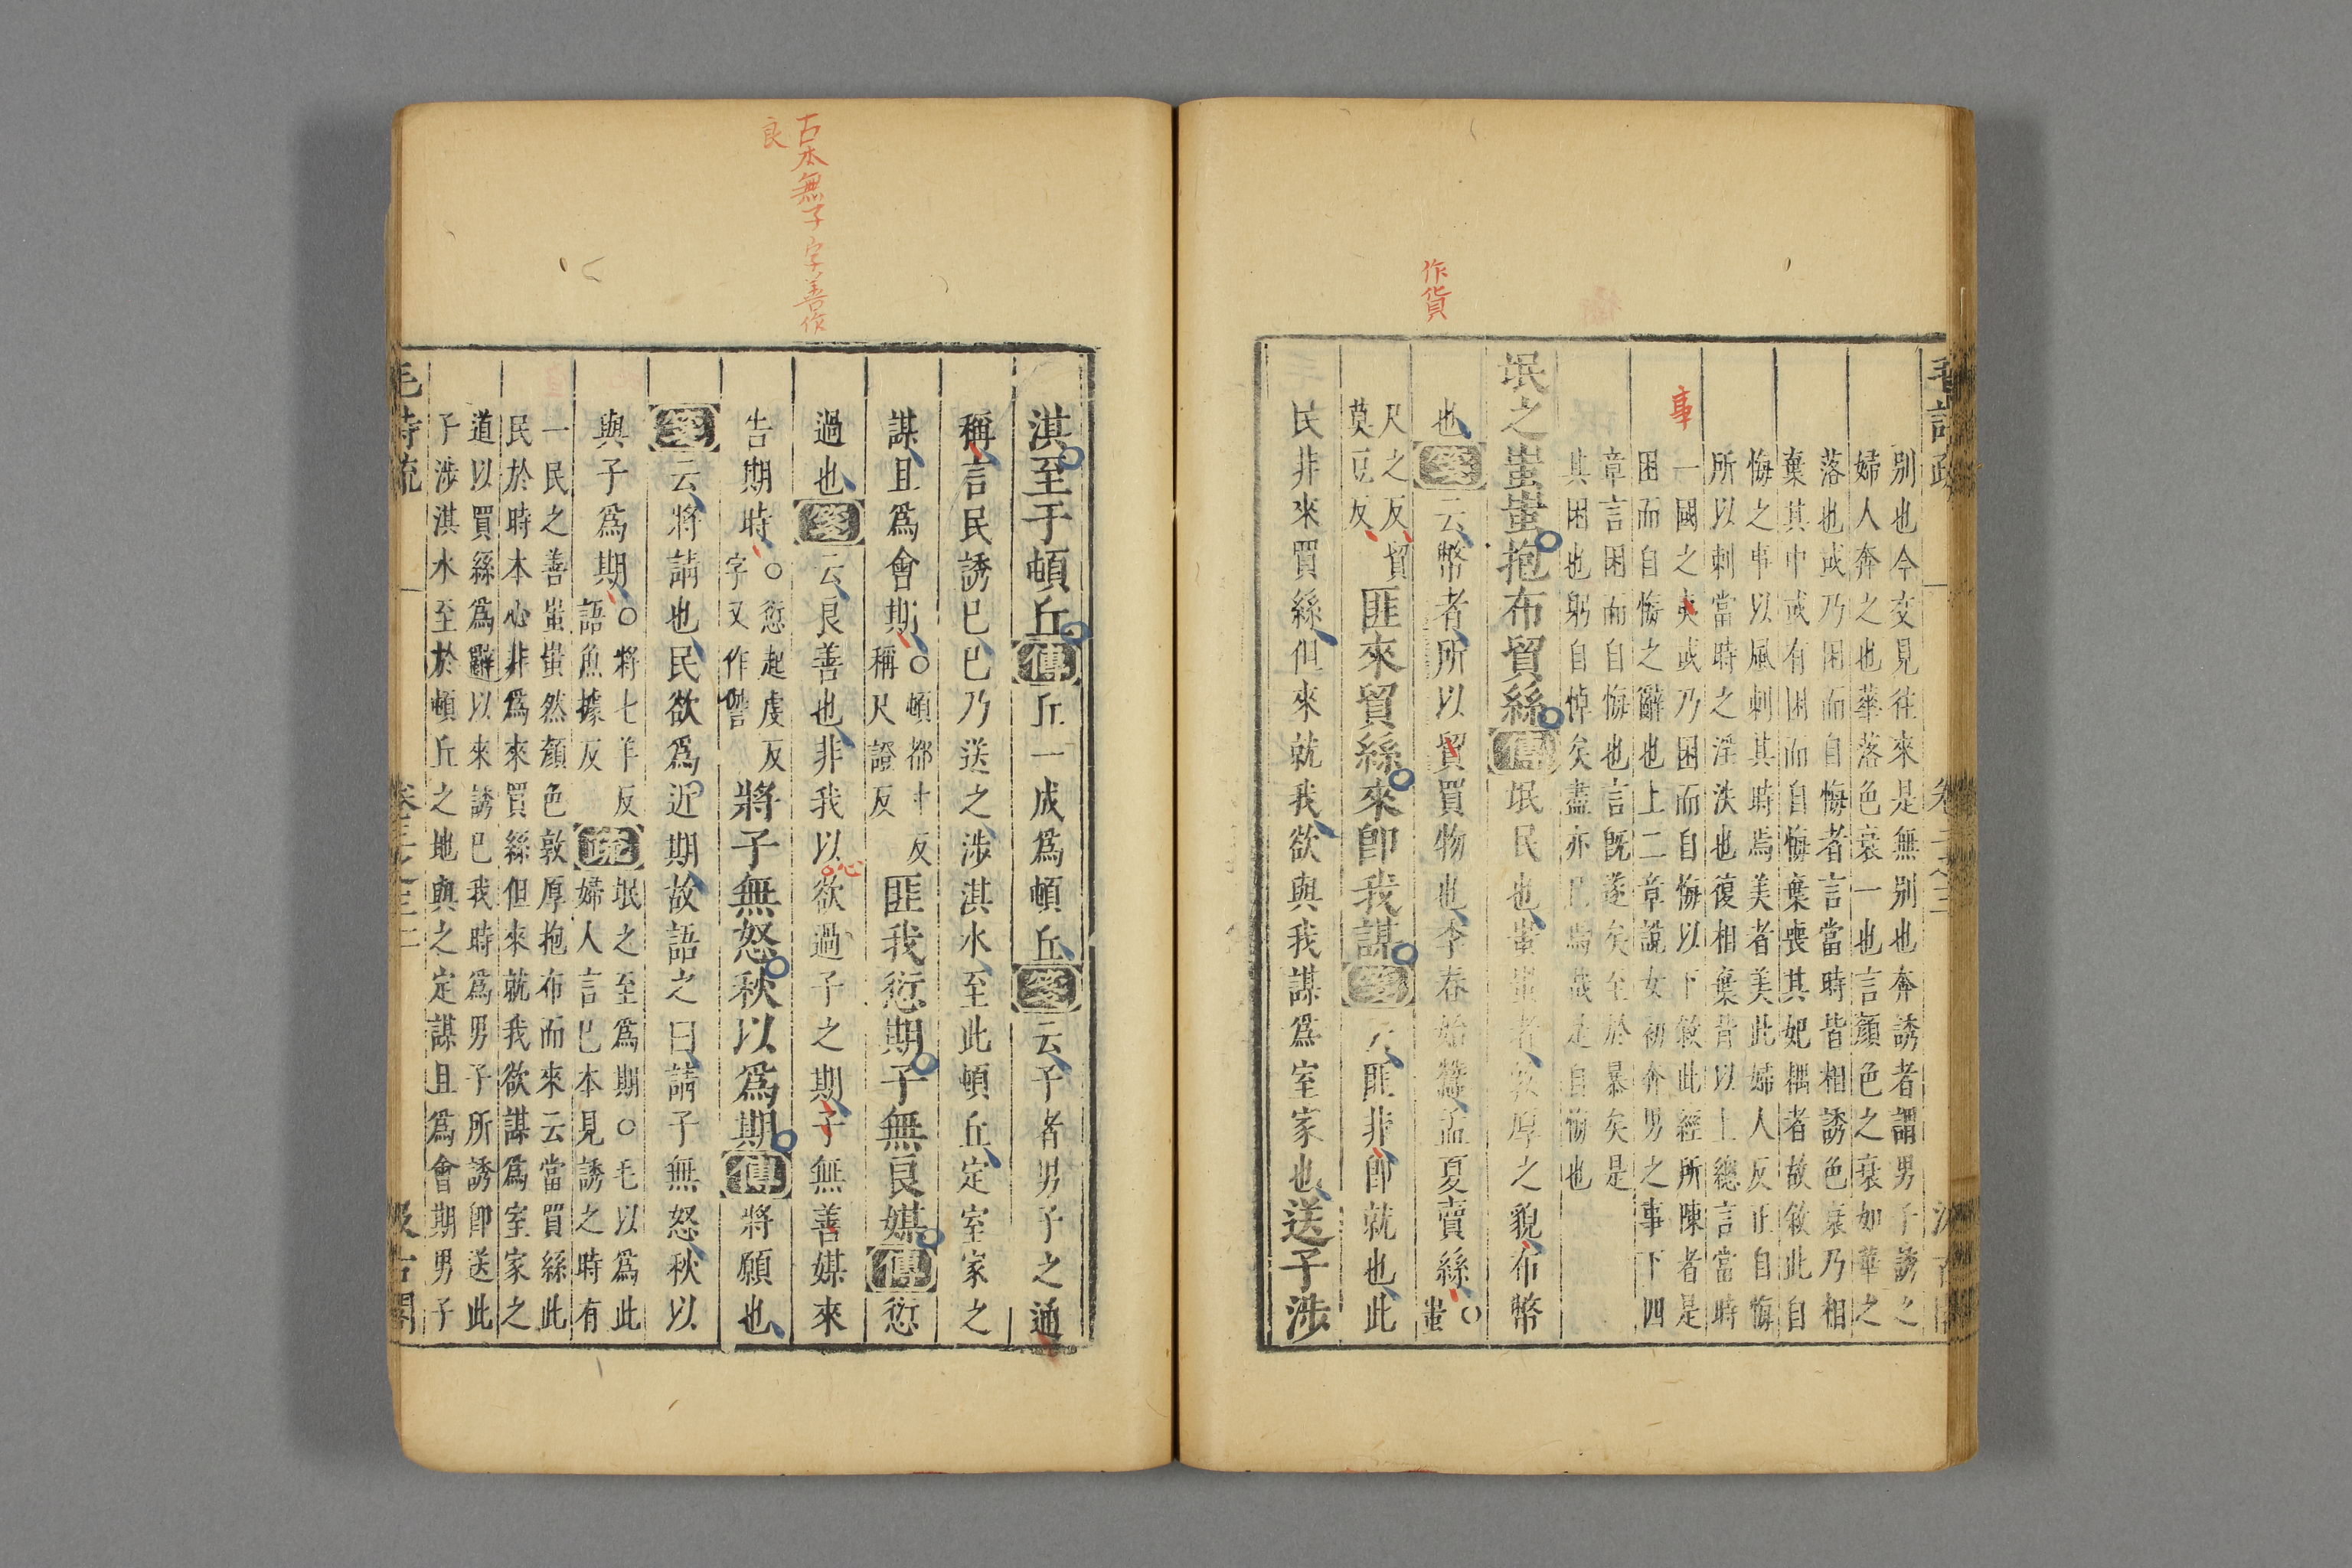 作貨
事
別也今交見往來是無別也奔誘者謂男子誘之
婦人奔之也華落色衰一也言顏色之衰如華之
落也或乃困而自悔者言當時皆相誘色衰乃相
棄其中或有困而自悔棄喪其妃耦者故敘此自
悔之事以風刺其時焉美者美此婦人反正自悔
所以刺當時之淫泆也復相棄昔以上總言當時
一國之或乃困而自悔以下敘此經所陳者是
困而自悔之辭也上二章說女初奔男之事下四
章言困而自悔也言既遂矣至於暴矣是
其困也躬自悼矣盡亦自悔也
氓之蚩蚩抱布貿絲傳氓民也蚩蚩者敦厚之貌布幣
也箋云幣者所以貿買物也季春始蠶孟夏賣絲○蚩
尺之反貿
莫豆反
匪來貿絲來卽我謀箋云匪非卽就也此
民非來買絲但來就我欲與我謀爲室家也送子涉
古本無子字善作
良
淇至于頓丘傳丘一成爲頓丘箋云子者男子之通
稱言民誘已已乃送之涉淇水至此頓丘定室家之
謀且爲會期○頓都寸反
稱尺證反
匪我愆期子無良媒傳愆
過也箋云良善也非我以欲過子之期子無善媒來
心
告期時○愆起虔反
字又作諐
將子無怒秋以爲期傳將願也
箋云將請也民欲爲近期故語之曰請子無怒秋以
與子爲期○將七羊反
語魚據反
疏氓之至爲期○毛以爲此
婦人言已本見誘之時有
一民之善蚩蚩然顏色敦厚抱布而來云當買絲此
民於時本心非爲來買絲但來就我欲謀爲室家之
道以買絲爲辭以來誘已我時爲男子所誘卽送此
子涉淇水至於頓丘之地與之定謀且爲會期男子
毛詩疏 卷三之三 二 汲古閣